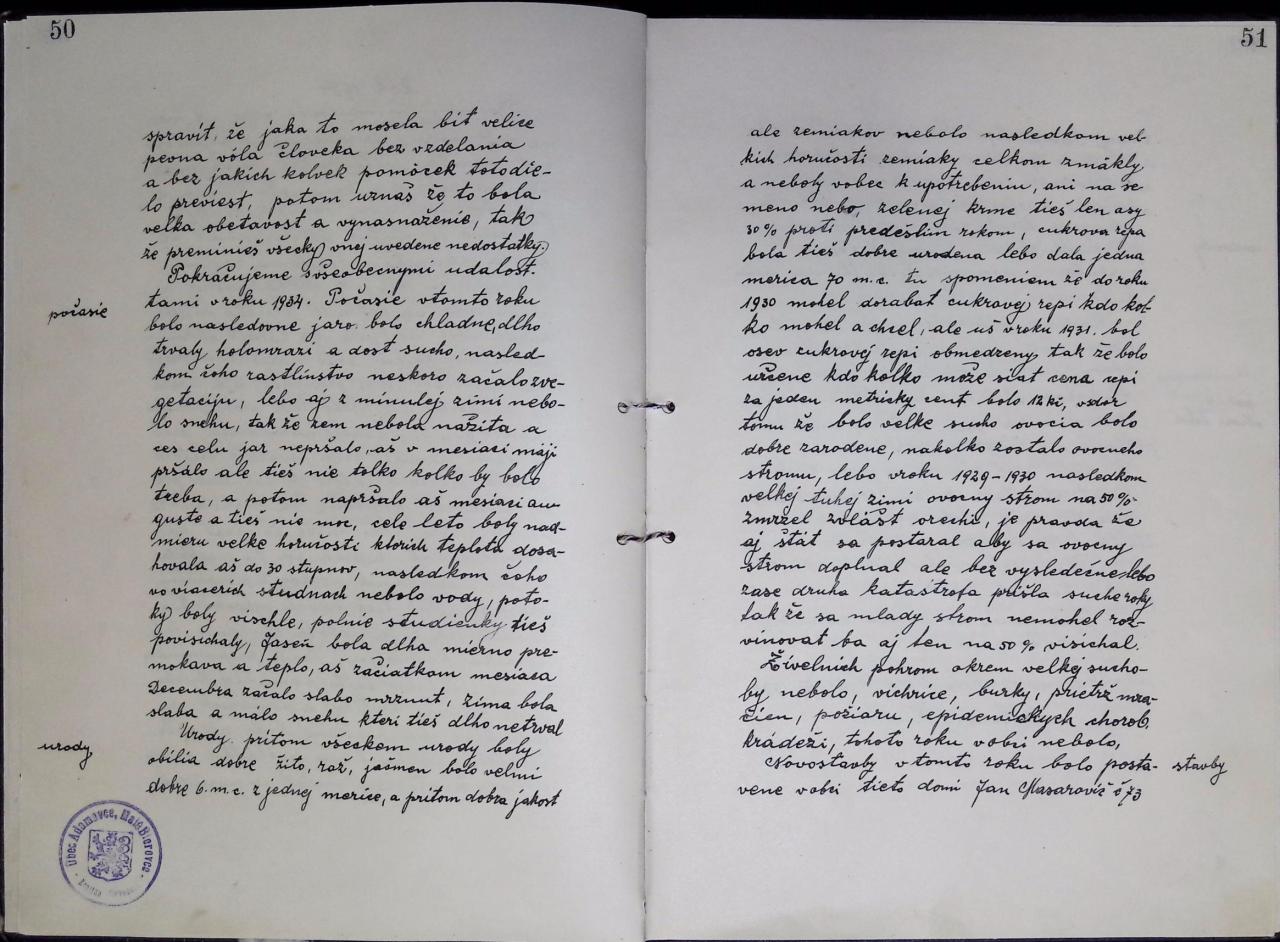 50
spravit, že jaka to mosela bit velice
pevna vóla človeka bez vzdelania
a bez jakich kolvek pomôcek toto die-
lo previest, potom uznaš že to bola
velka obetavost a vynasnaženie, tak
že preminieš všecky vnej uvedene nedostatky.
Pokračujeme svšeobecnymi udalost-
tami vroku 1934. Počasie vtomto roku
počasie
bolo nasledovne jaro bolo chladne, dlho
trvaly holomrazi a dost sucho, nasled-
kom čoho rastlinstvo neskoro začalo zve-
getaciju, lebo aj z minulej zimi nebo-
lo snehu, tak že zem nebola nažita a
ces celu jar nepršalo, aš v mesiaci máji
pršálo ale tieš nie tolko kolko by bolo
treba, a potom napršalo aš mesiaci au-
guste a tieš nie moc, cele leto boly nad-
mieru velke horučosti ktorich teplota dosa-
hovala aš do 30 stupnov, nasledkom čoho
vo viacerich studnach nebolo vody, poto-
ky boly vischle, polnie studienky tieš
povisichaly, Jaseň bola dlha mierno pre-
mokava a teplo, aš začiatkom mesiaca
Decembra začalo slabo mrznut, zima bola
slaba a málo snehu kteri tieš dlho netrval
Urody. pritom všeckem urody boly
urody
obilia dobre žito, raž, jačmen bolo velmi
dobre 6. m. c. z jednej merice, a pritom dobra jakost
Obec Adamovce, Malé Bierovce
51
ale zemiakov nebolo nasledkom vel-
kich horučosti zemiaky celkom zmäkly
a neboly vobec k upotrebeniu, ani na se-
meno nebo, zelenej krme tieš len asy
30% proti predešlim rokom, cukrova repa
bola tieš dobre urodena lebo dala jedna
merica 70 m. c. tu spomeniem že do roku
1930 mohel dorabat cukrovej repi kdo kol-
ko mohel a chcel, ale uš vroku 1931. bol
osev cukrovej repi obmedzeny tak že bolo
určene kdo kolko može siat cena repi
za jeden metricky cent bolo 12 kč, vzdor
tomu že bolo velke sucho ovocia bolo
dobre zarodene, nakolko zostalo ovocneho
stromu, lebo vroku 1929-1930 nasledkom
velkej tuhej zimi ovocny strom na 50%
zmrzel zvlášt orechi, je pravda že
aj štát sa postaral aby sa ovocny
strom doplnal ale bez vysledečne, lebo
zase druha katastrofa prišla suche roky
tak že sa mlady strom nemohel roz-
vinovat ba aj ten na 50% visichal.
Živelnich pohrom okrem velkej sucho-
by nebolo, vichrice, burky, prietrž mra-
čien, požiaru, epidemickych chorob,
krádeži, tohoto roku vobci nebolo,
Novostavby vtomto roku bolo posta-
stavby
vene vobci tieto domi Jan Masarovič č 73